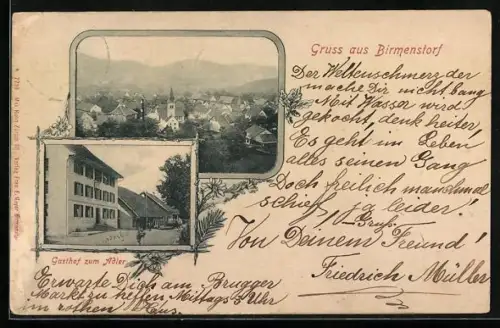 Gruss aus Birmenstorf
Der Weltenschmerz der
mache Dir nicht bang
Mit Wasser wird
gekocht, denk heiter,
Es geht im Leben
alles seinen Gang
Doch freilich manchmal
schief, ja leider!
Gruss
Von Deinem Freund!
Friedrich Müller
Gasthof zum Adler
Erwarte Dich am Brugger
Markt zu treffen, Mittags 2 Uhr
im rothen Haus.